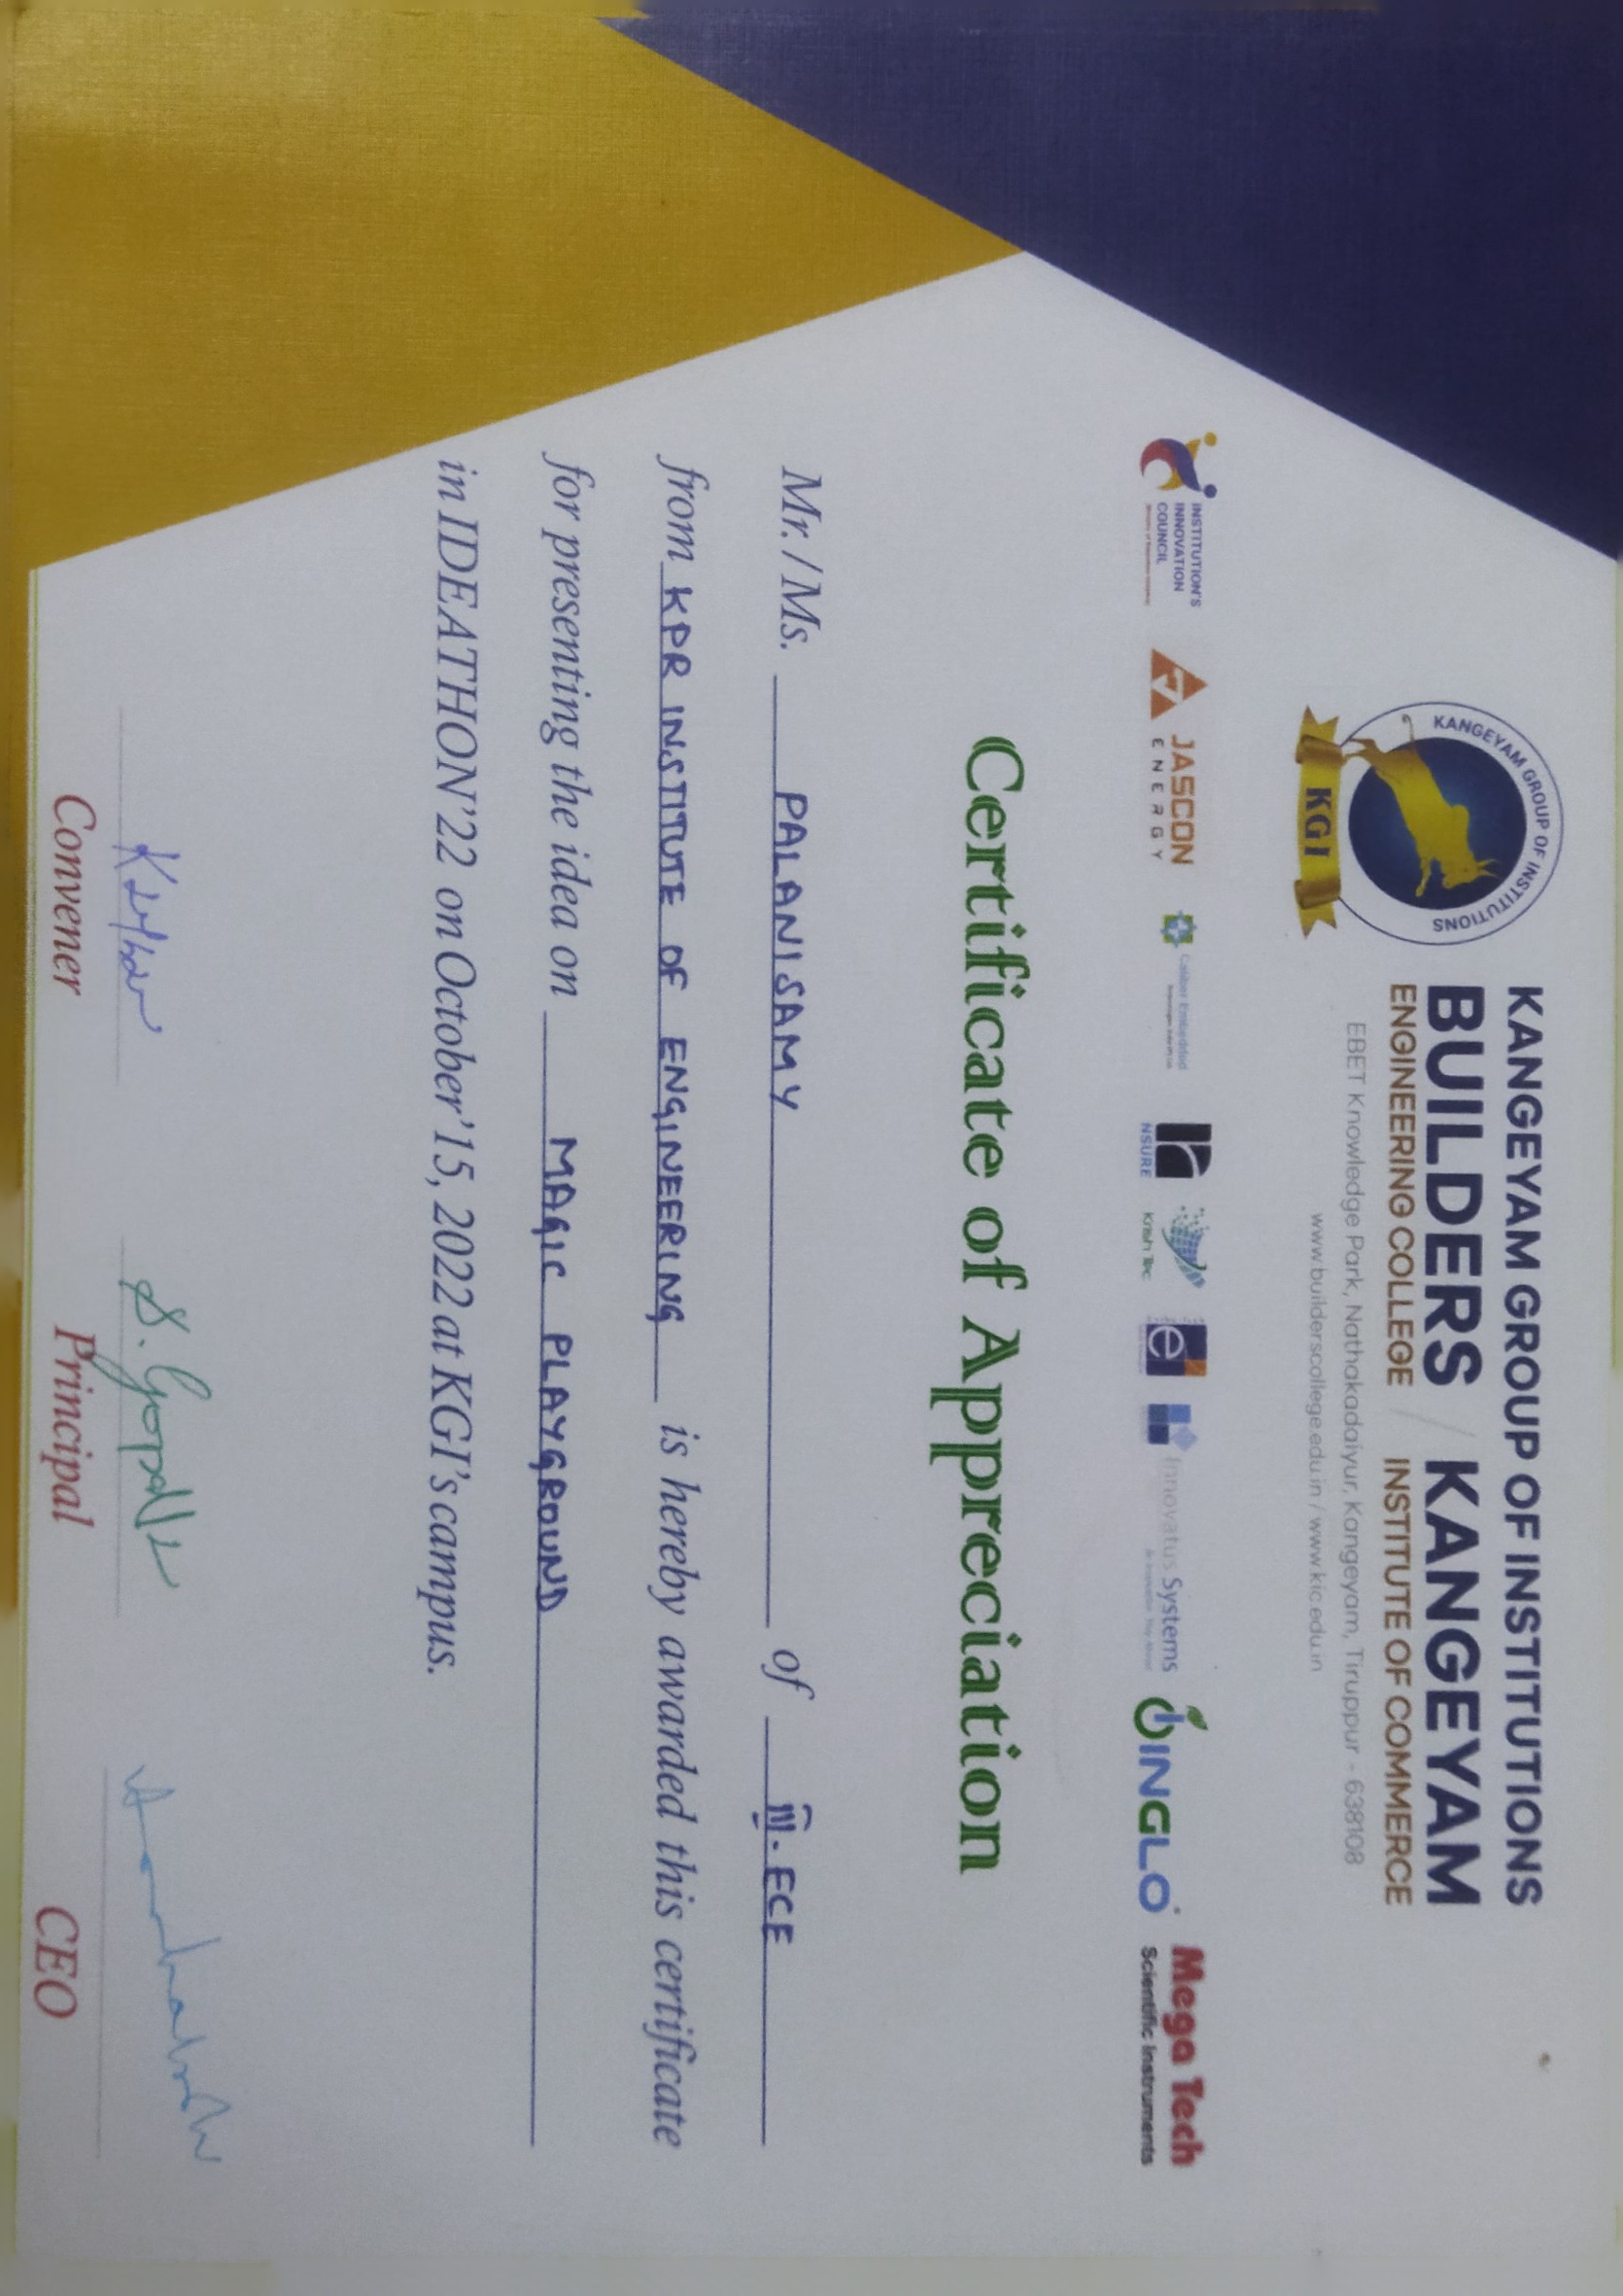 KANGEYAM GROUP OF INSTITUTIONS
KGI
KANGEYAM GROUP OF INSTITUTIONS
BUILDERS / KANGEYAM
ENGINEERING COLLEGE INSTITUTE OF COMMERCE
EBET Knowledge Park, Nathakadaiyur, Kangeyam, Tiruppur - 638108
www.builderscollege.edu.in / www.kic.edu.in
INSTITUTION'S
INNOVATION
COUNCIL
JASCON
ENERGY
Caliber Embedded
NSURE
Krish Tec
e
Innovatus Systems
INGLO
Mega Tech
Scientific Instruments
Certificate of Appreciation
Mr. / Ms. PALANISAMY of III. ECE
from KPR INSTITUTE OF ENGINEERING is hereby awarded this certificate
for presenting the idea on MAGIC PLAYGROUND
in IDEATHON'22 on October'15, 2022 at KGI's campus.
Convener Principal CEO